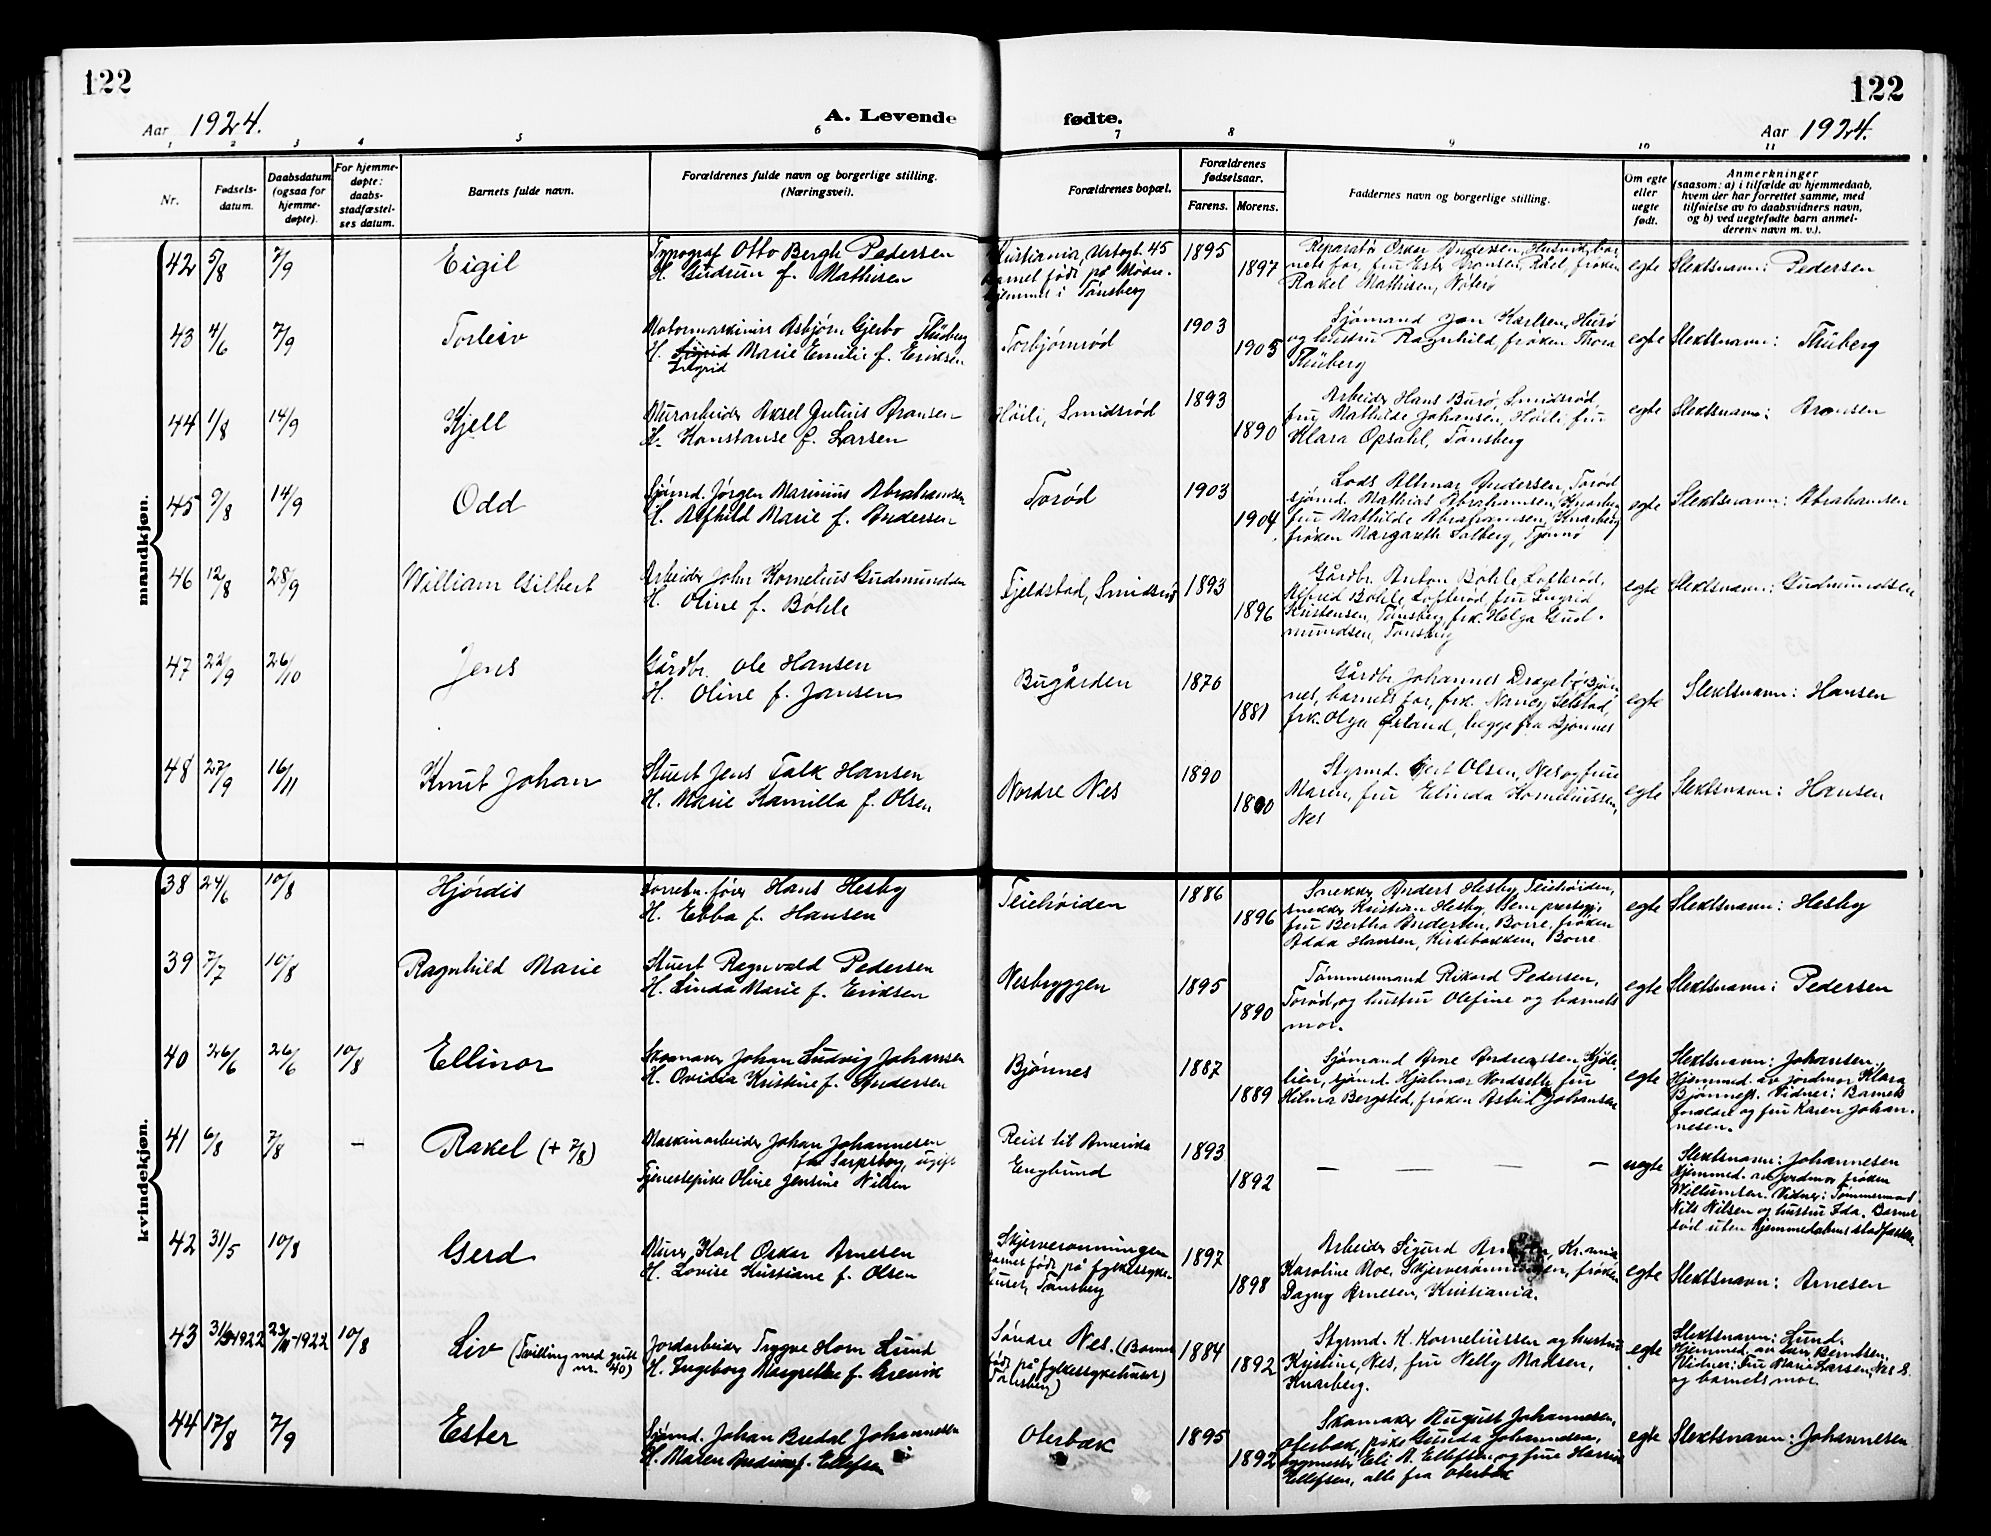 122
122
Aar 1924.
A. Levende fødte.
Aar 1924.
1 2 3 4 5 6 7 8 9 10 11
Nr.
Fødsels-
datum.
Daabsdatum
(ogsaa for
hjemme-
døpte).
For hjemme-
døpte:
daabs-
stadfæstel-
ses datum.
Barnets fulde navn.
Forældrenes fulde navn og borgerlige stilling.
(Næringsvei).
Forældrenes bopæl.
Forældrenes
fødselsaar.
Farens. Morens.
Faddernes navn og borgerlige stilling.
Om egte
eller
uegte
født.
Anmerkninger
(saasom: a) i tilfælde av hjemmedaab,
hvem der har forrettet samme, med
tilføielse av to daabsvidners navn,
og b) ved uegtefødte barn anmel-
derens navn m. v.).
mandkjøn.
42 5/8 7/9 Eigil
Typograf Otto Bergh Pedersen
H. Gudrun f. Mathisen
Kristiania, Urtegt. 45
barnet født på Mødre-
hjemmet i Tønsberg
1895 1897
Reparatør Oskar Andersen, Husvik, bar-
nets far, fru Ester Aronsen, Råel, frøken
Rakel Mathisen, Nøterø
egte Slektsnavn: Pedersen
43 4/6 7/9 Torleiv
Motormaskinist Asbjørn Gjerbo Thüberg
H. Sigrid Marie Emilie f. Eriksen
Ingrid
Torbjørnrød
1903 1905
Sjømand Jon Karlsen, Husø
og hustru Ragnhild, frøken Thora
Thüberg
egte Slektsnavn: Thüberg
44 1/8 14/9 Kjell
Murarbeider Aksel Julius Aronsen
H. Konstanse f. Larsen
Høili, Smidsrød
1893 1890
Arbeider Hans Burø, Smidsrød
fru Mathilde Johansen, Høili, fru
Klara Opsahl, Tønsberg
egte Slektsnavn: Aronsen
45 9/8 14/9 Odd
Sjømd. Jørgen Marinius Abrahamsen
H. Alfhild Marie f. Andersen
Torød
1903 1904
Lods Altmar Andersen, Torød
sjømd. Mathias Abrahamsen, Knarberg
fru Mathilde Abrahamsen, Knarberg
frøken Margareth Solberg, Tjømø
egte Slektsnavn: Abrahamsen
46 12/8 28/9 William Gilbert
Arbeider John Kornelius Gudmundsen
H. Oline f. Bøhle
Fjeldstad, Smidsrø
1893 1896
Gårdbr. Anton Bøhle, Lofterød,
Alfred Bøhle, Lofterød, fru Ingrid
Kristensen, Tønsberg, frk. Helga Gud-
mundsen, Tønsberg
egte Slektsnavn: Gudmundsen
47 22/9 26/10 Jens
Gårdbr. Ole Hansen
H. Oline f. Jansen
Bugården
1876 1881
Gårdbr. Johannes Dragebø, Bjøn-
nes, barnets far, frk. Nancy Selstad,
frk. Olga Østand, begge fra Bjønnes
egte Slektsnavn: Hansen
48 27/9 16/11 Knut Johan
Stuert Jens Falk Hansen
H. Marie Kamilla f. Olsen
Nordre Nes
1890
Styrmd. Gert Olsen, Nes og frue
Maren, fru Elinda Korneliussen,
Nes
egte Slektsnavn: Hansen
kvindekjøn.
38 24/6 10/8 Hjørdis
Forretn.fører Hans Hesby
H. Ebba f. Hansen
Teiehøiden
1886 1896
Snekker Anders Hesby, Teiehøiden,
snekker Kristian Hesby, Sem prestegj.,
fru Bertha Andersen, Borre, frøken
Adda Hansen, Kirkebakken, Borre
egte Slektsnavn: Hesby
39 7/7 10/8 Ragnhild Marie
Stuert Ragnvald Pedersen
H. Linda Marie f. Eriksen
Nesbryggen
1895 1890
Tømmermand Rikard Pedersen,
Torød, og hustru Olefine og barnets
mor.
egte Slektsnavn: Pedersen
40 26/6 26/6 10/8 Ellinor
Skomaker Johan Ludvig Johansen
H. Ovidia Kristine f. Andersen
Bjønnes
1887 1889
Sjømand Arne Andreassen Kjøle-
lien, sjømd. Hjalmar Nordseth, fru
Hilma Bergsted, frøken Astrid Johansen
egte Slektsnavn: Johansen
Hjemmed. av jordmor Klara
Bjønnes. Vidner: Barnets
foreldre og fru Karen Johan-
nesen.
41 6/8 7/8 — Rakel (+ 7/8)
Maskinarbeider Johan Johannesen
fra Sarpsborg, ugift
Tjenestepike Oline Jensine Nilsen
Reist til Amerika
Englund
1893 1892
— — — — —
uegte Slektsnavn: Johannesen
Hjemmed. av jordmor frøken
Willumsen. Vidner: Tømmermand
Nils Nilsen og hustru Ida. Barnet
død uten hjemmedåbens stadfæstelse
42 31/5 10/8 Gerd
Murer Karl Oskar Arnesen
H. Lovise Kristiane f. Olsen
Skjerverønningen
Barnet født på fylkessyke-
huset, Tønsberg
1897 1898
Arbeider Sigurd Arnesen, Kr.ania
Karoline Moe, Skjerverønningen, frøken
Dagny Arnesen, Kristiania.
egte Slektsnavn: Arnesen
43 10/8 Liv (Tvilling med gutt
nr. 40)
Jordarbeider Trygve Horn Lund
H. Ingeborg Margrethe f. Grevik
Søndre Nes. (Barnet
født på fylkessykehuset
Tønsberg)
1884 1892
Styrmd. K. Korneliussen og hustru
Kristine, Nes, fru Nelly Madsen,
Knarberg.
egte Slektsnavn: Lund.
Hjemmed. av Berntsen.
Vidner: Fru Marie Larsen, Nes S.
og barnets mor
44 17/8 7/9 Ester
Sjømd. Johan Bredal Johannesen
H. Maren f. Ellefsen
Oterbæk
1895 1892
Skomaker August Johannesen,
Oterbæk, pike Gunda Johannesen,
bygmester Eli A. Ellefsen og frue Hanna
Ellefsen, alle fra Oterbæk
egte Slektsnavn: Johannesen